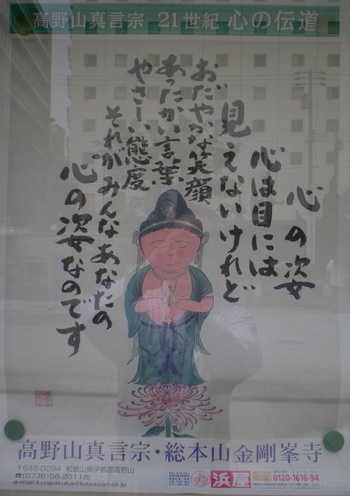 高野山真言宗 21世紀 心の伝道
心の姿
心は目には
見えないけれど
おだやかな笑顔
あったかい言葉
やさしい態度
それがみんなあなたの
心の姿なのです
高野山真言宗・総本山金剛峯寺
〒648-0294 和歌山県伊都郡高野山
☎(0736)56-2011㈹
浜屋 0120-1616-94